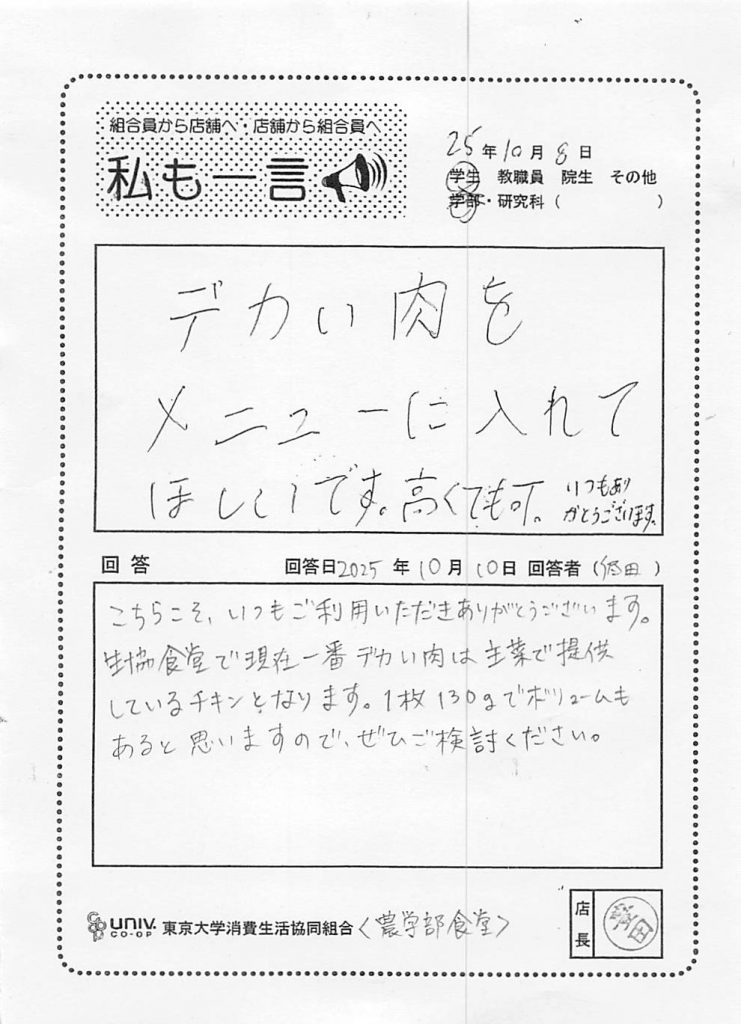 組合員から店舗へ・店舗から組合員へ
私も一言
25年10月8日
学生 教職員 院生 その他
学部・研究科（ ）
デカい肉を
メニューに入れて
ほしいです。高くても可。
いつもあり
がとうございます。
回答 回答日2025年10月10日 回答者（ 田 ）
こちらこそ、いつもご利用いただきありがとうございます。
生協食堂で現在一番デカい肉は主菜で提供
しているチキンとなります。1枚130gでボリュームも
あると思いますので、ぜひご検討ください。
UNIV.
CO-OP
東京大学消費生活協同組合〈農学部食堂〉
店長